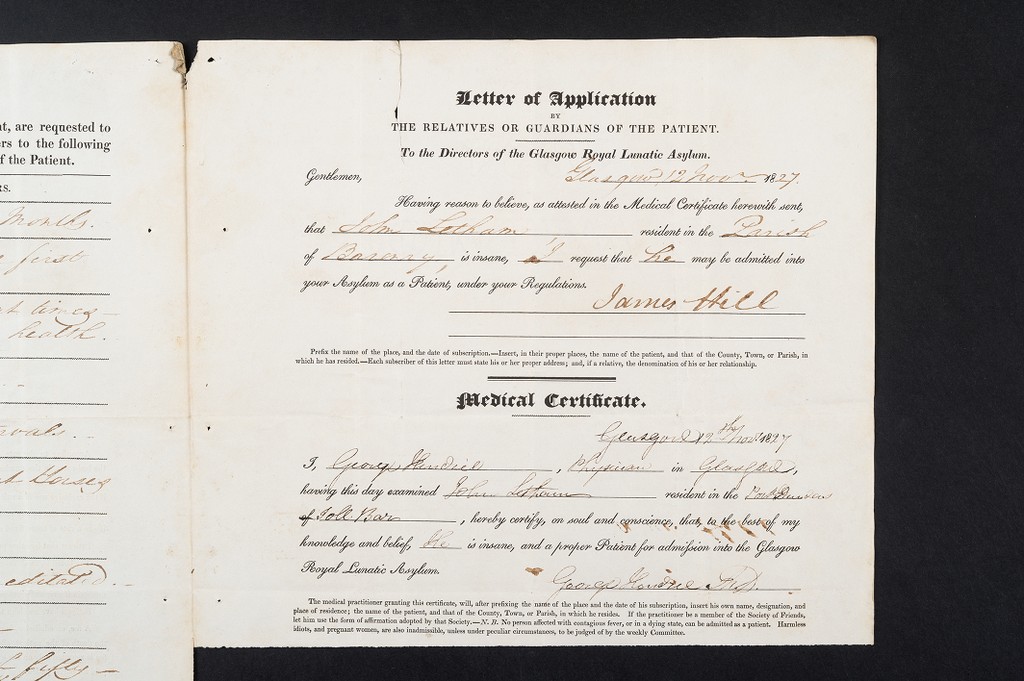 nt, are requested to
ers to the following
f the Patient.
RS.
Months.
first
at times
health.
vals.
Horses
editated.
fifty
Letter of Application
BY
THE RELATIVES OR GUARDIANS OF THE PATIENT.
To the Directors of the Glasgow Royal Lunatic Asylum.
Gentlemen, Glasgow 12 Novr. 1827.
Having reason to believe, as attested in the Medical Certificate herewith sent,
that John Letham resident in the Parish
of Barony is insane, I request that he may be admitted into
your Asylum as a Patient, under your Regulations.
James Hill
Prefix the name of the place, and the date of subscription.—Insert, in their proper places, the name of the patient, and that of the County, Town, or Parish, in
which he has resided.—Each subscriber of this letter must state his or her proper address; and, if a relative, the denomination of his or her relationship.
Medical Certificate.
Glasgow 12th Novr. 1827
I, George Hendrie, Physician in Glasgow,
having this day examined John Letham resident in the
of Toll Bar, hereby certify, on soul and conscience, that, to the best of my
knowledge and belief, he is insane, and a proper Patient for admission into the Glasgow
Royal Lunatic Asylum.
George Hendrie M.D.
The medical practitioner granting this certificate, will, after prefixing the name of the place and the date of his subscription, insert his own name, designation, and
place of residence; the name of the patient, and that of the County, Town, or Parish, in which he resides. If the practitioner be a member of the Society of Friends,
let him use the form of affirmation adopted by that Society.—N. B. No person affected with contagious fever, or in a dying state, can be admitted as a patient. Harmless
idiots, and pregnant women, are also inadmissible, unless under peculiar circumstances, to be judged of by the weekly Committee.